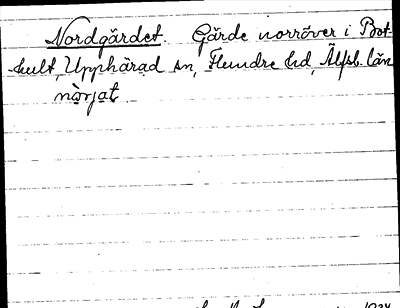 Nordgärdet. Gärde norröver i Bot-
hult, Upphärad sn, Flundre hd, Älfsb. län
nòrjat